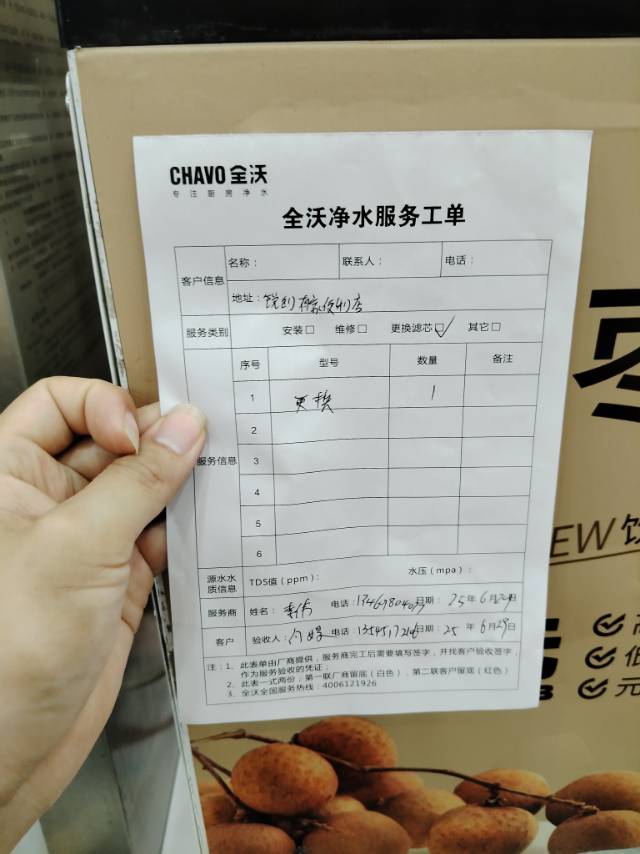 CHAVO 全沃
专注厨房净水
全沃净水服务工单
客户信息 名称： 联系人： 电话：
地址： 便利店
服务类别 安装□ 维修□ 更换滤芯☑ 其它□
服务信息 序号 型号 数量 备注
1 更换 1
2
3
4
5
6
源水水质信息 TDS值（ppm）： 水压（mpa）：
服务商 姓名： 电话： 日期： 25年6月29日
客户 验收人： 电话： 日期： 25年6月29日
注：1、此表单由厂商提供，服务商完工后需要填写签字，并找客户验收签字，
作为服务验收的凭证；
2、此表一式两份，第一联厂商留底（白色），第二联客户留底（红色）
3、全沃全国服务热线：4006121926
枣
EW 饮